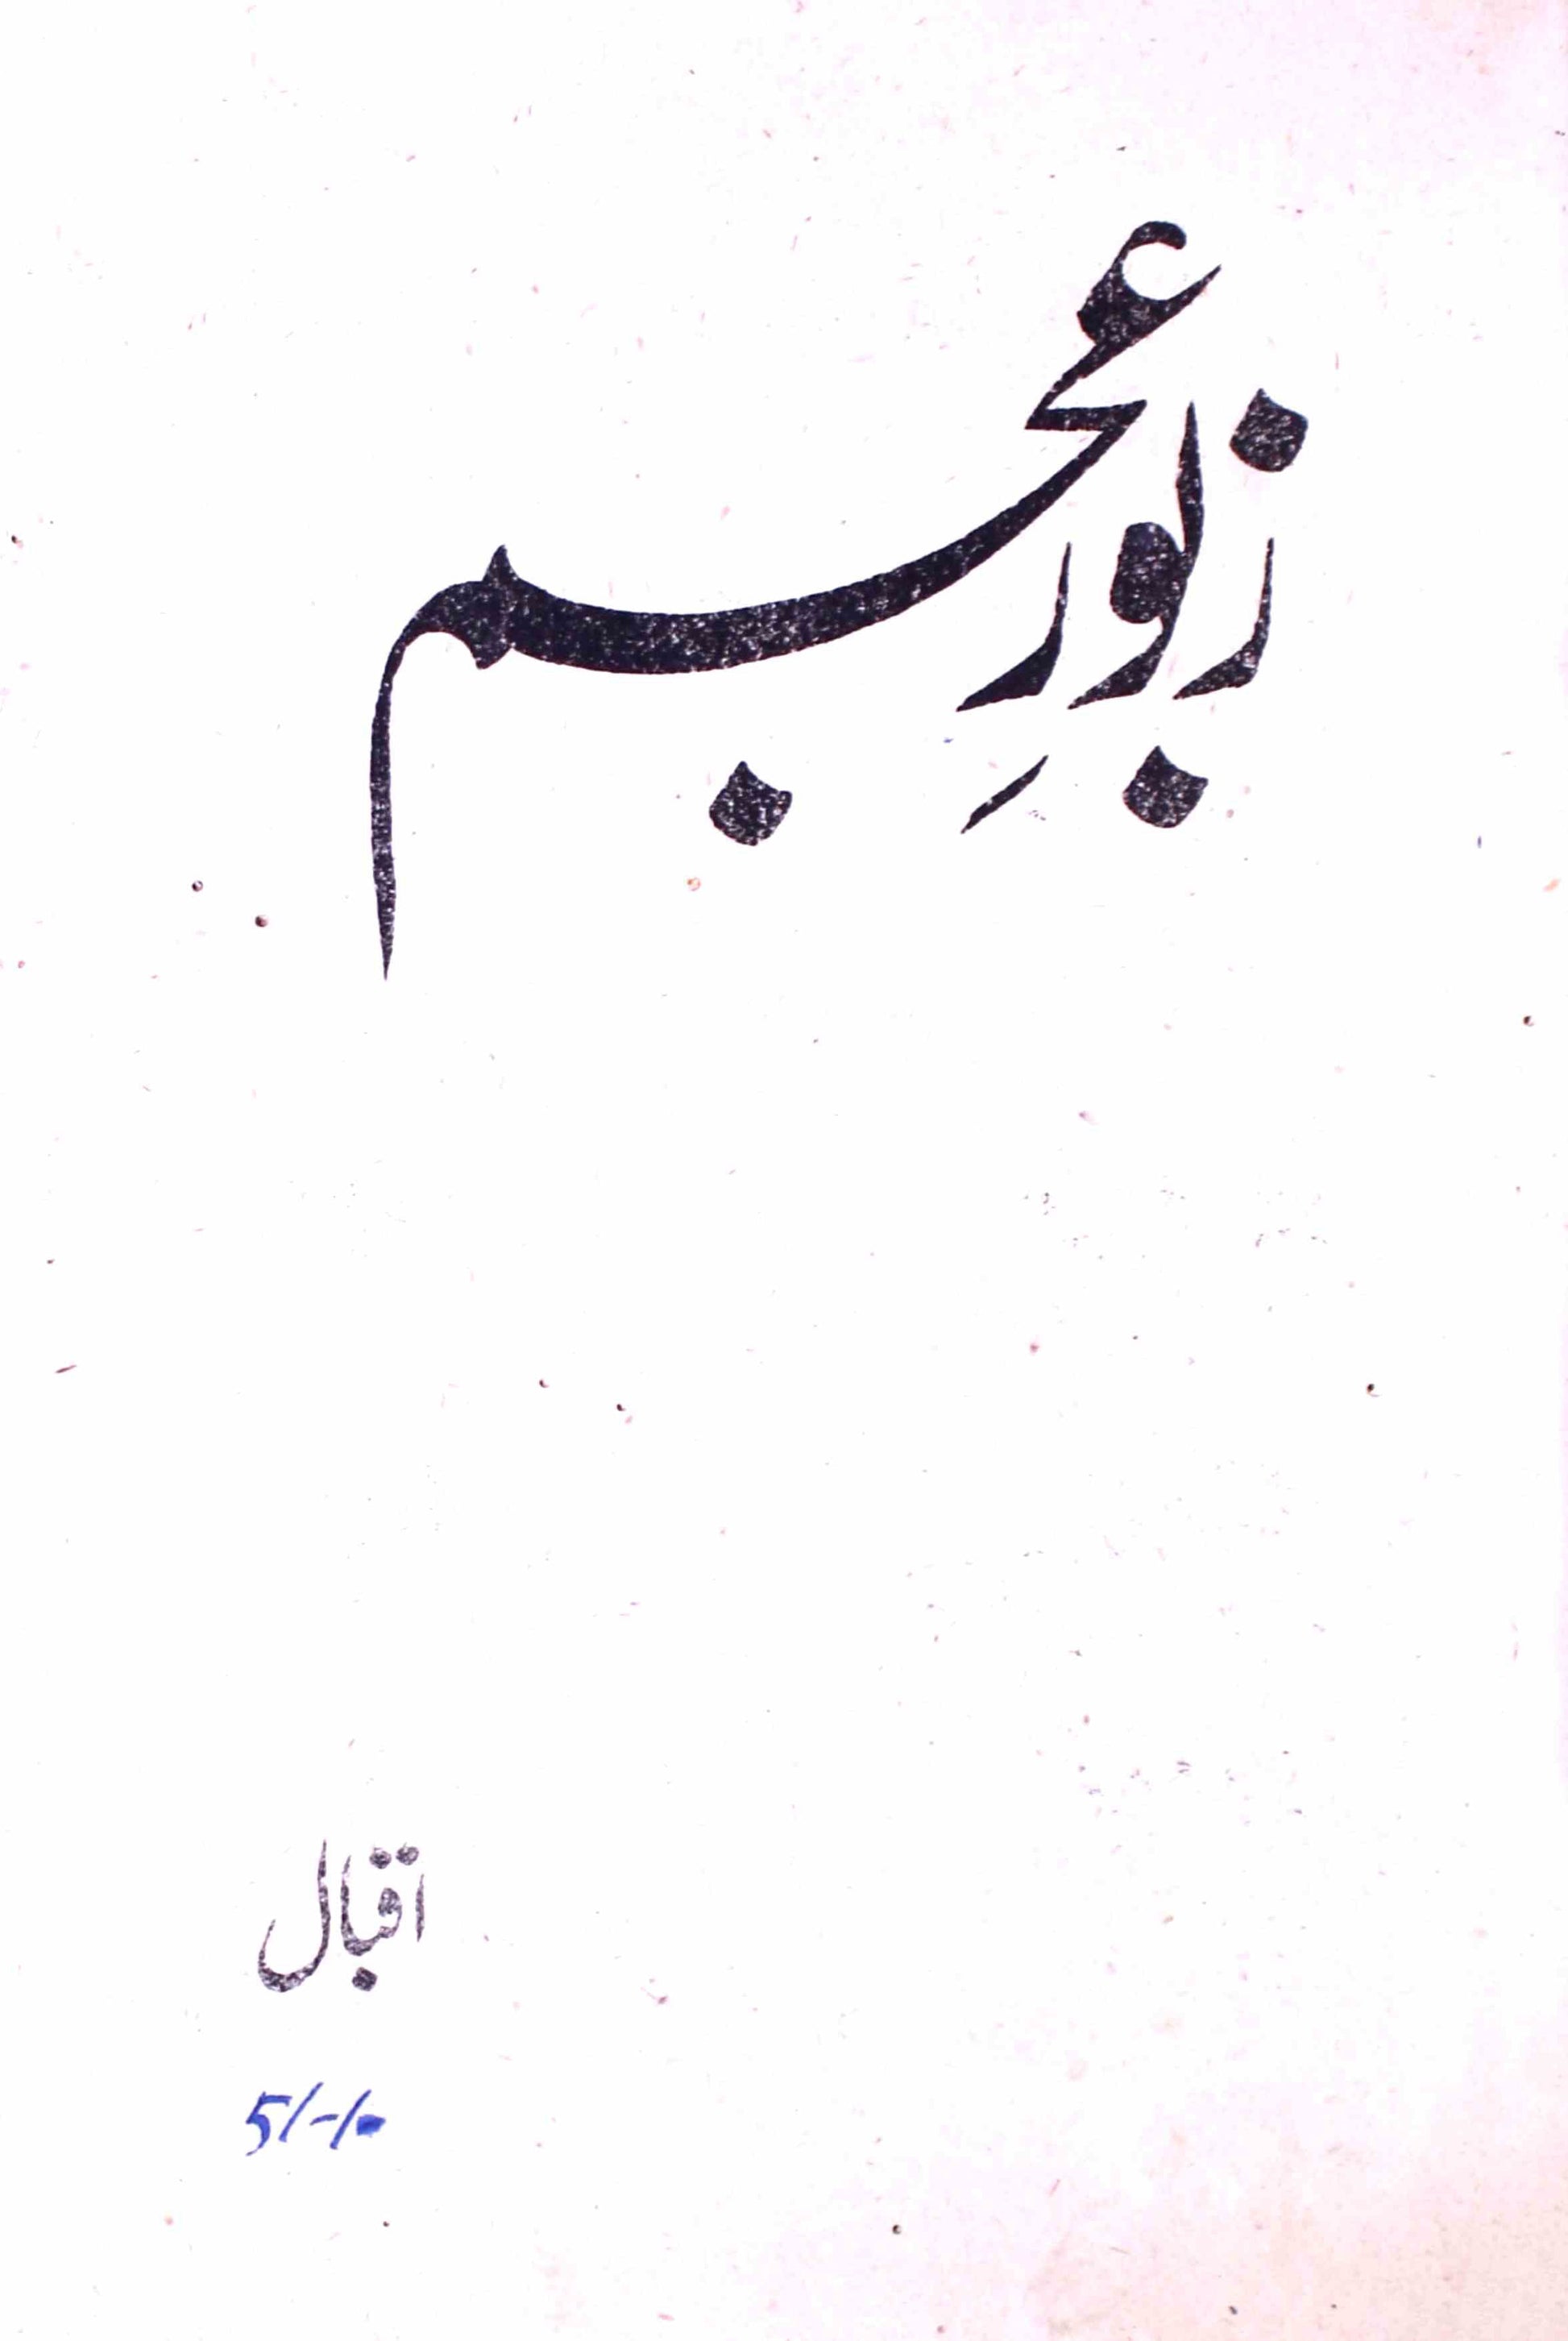 زبورِ عجم
اقبال
5/-/-